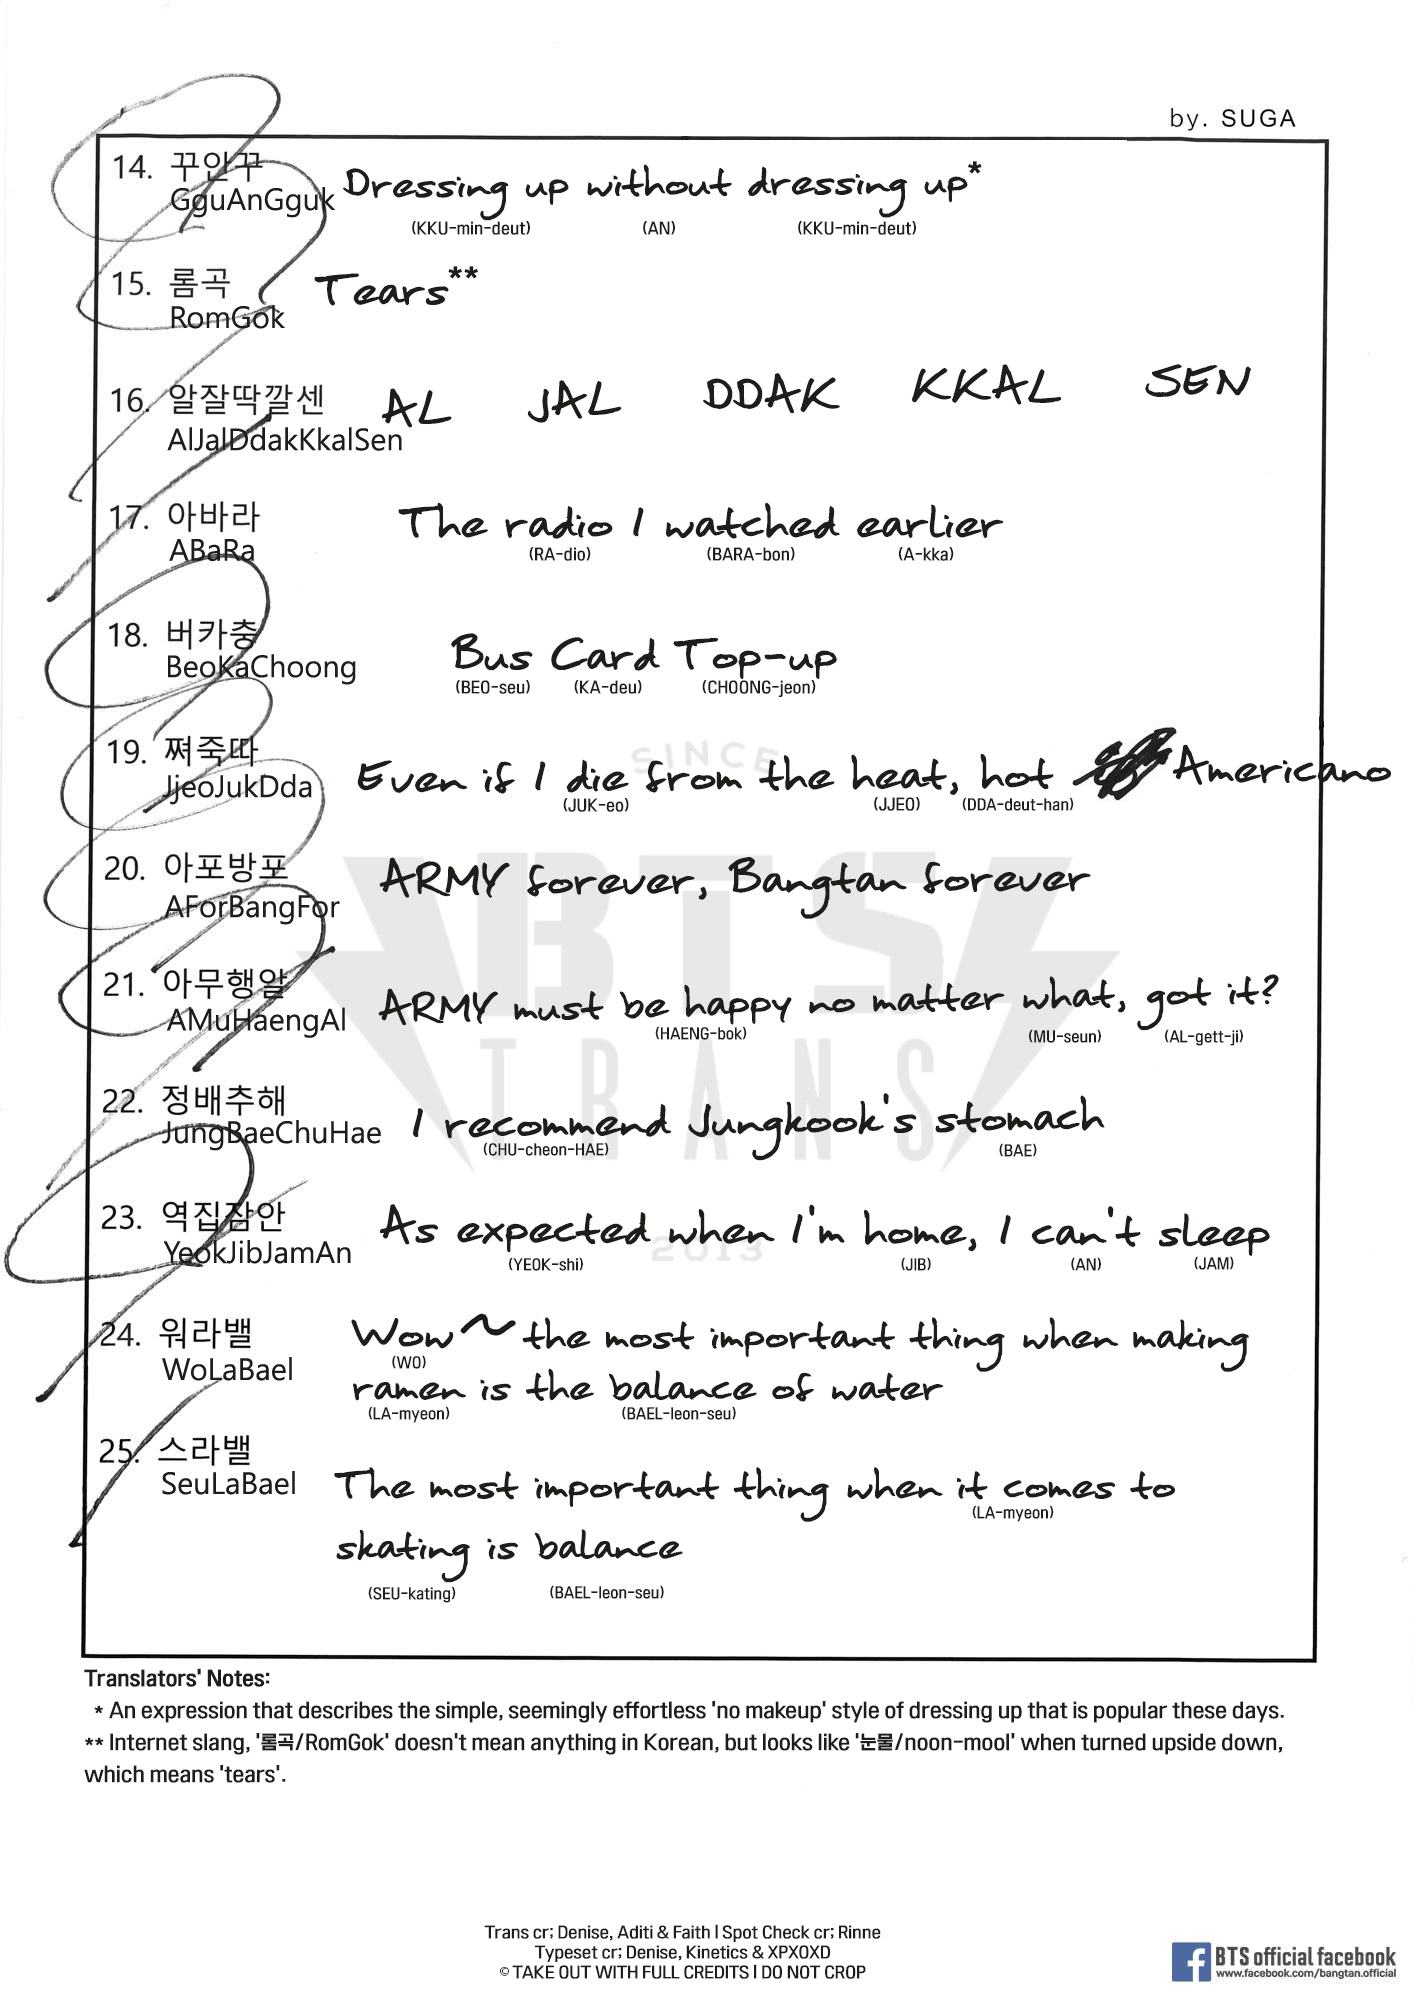 by. SUGA
14. 꾸안꾸 Dressing up without dressing up*
GguAnGguk (KKU-min-deut) (AN) (KKU-min-deut)
15. 롬곡 Tears**
RomGok
16. 알잘딱깔센 AL JAL DDAK KKAL SEN
AlJalDdakKkalSen
17. 아바라 The radio I watched earlier
ABaRa (RA-dio) (BARA-bon) (A-kka)
18. 버카충 Bus Card Top-up
BeoKaChoong (BEO-seu) (KA-deu) (CHOONG-jeon)
19. 쪄죽따 Even if I die from the heat, hot Americano
JjeoJukDda (JUK-eo) (JJEO) (DDA-deut-han)
20. 아포방포 ARMY forever, Bangtan forever
AForBangFor
21. 아무행알 ARMY must be happy no matter what, got it?
AMuHaengAl (HAENG-bok) (MU-seun) (AL-gett-ji)
22. 정배추해 I recommend Jungkook's stomach
JungBaeChuHae (CHU-cheon-HAE) (BAE)
23. 역집잠안 As expected when I'm home, I can't sleep
YeokJibJamAn (YEOK-shi) (JIB) (AN) (JAM)
24. 워라밸 Wow~ the most important thing when making
(WO)
WoLaBael ramen is the balance of water
(LA-myeon) (BAEL-leon-seu)
25. 스라밸
SeuLaBael The most important thing when it comes to
(LA-myeon)
skating is balance
(SEU-kating) (BAEL-leon-seu)
SINCE
BTS
TRANS
2013
Translators' Notes:
* An expression that describes the simple, seemingly effortless 'no makeup' style of dressing up that is popular these days.
** Internet slang, '롬곡/RomGok' doesn't mean anything in Korean, but looks like '눈물/noon-mool' when turned upside down,
which means 'tears'.
Trans cr; Denise, Aditi & Faith | Spot Check cr; Rinne
Typeset cr; Denise, Kinetics & XPXOXD
© TAKE OUT WITH FULL CREDITS | DO NOT CROP
f BTS official facebook
www.facebook.com/bangtan.official